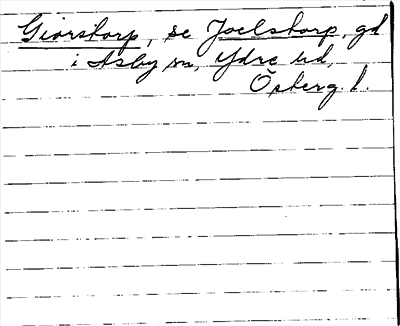 Giorstorp, se Joelstorp, gd
i Asby sn, Ydre hd,
Östergl.